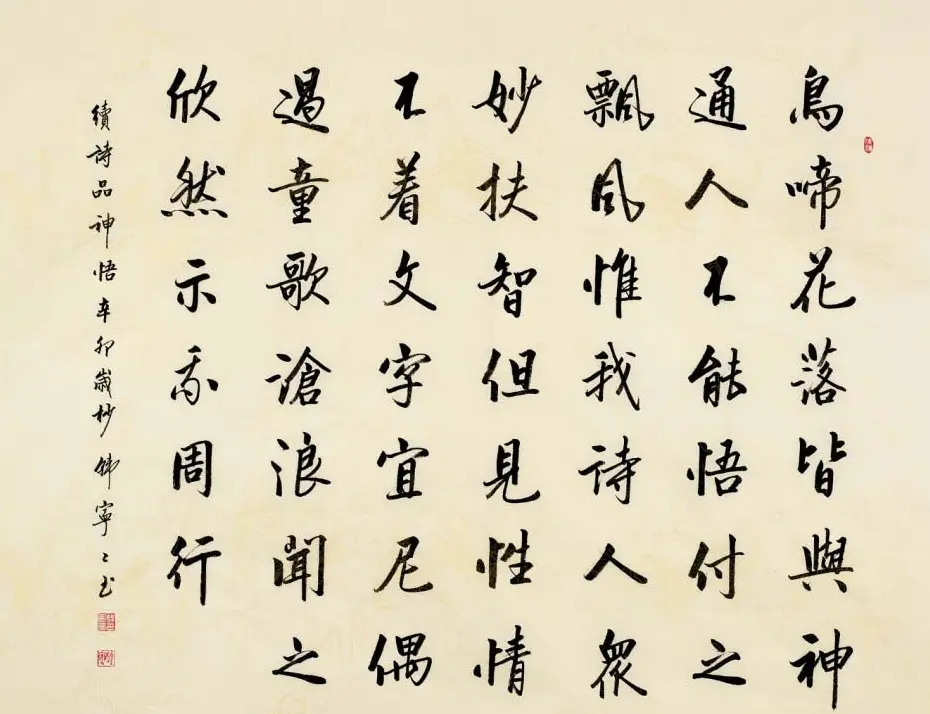 鳥啼花落皆與神
通人不能悟付之
飄風惟我詩人眾
妙扶智但見性情
不着文字宜尼偶
過童歌滄浪聞之
欣然示我周行
續詩品神悟辛卯歲杪韓寧〻书